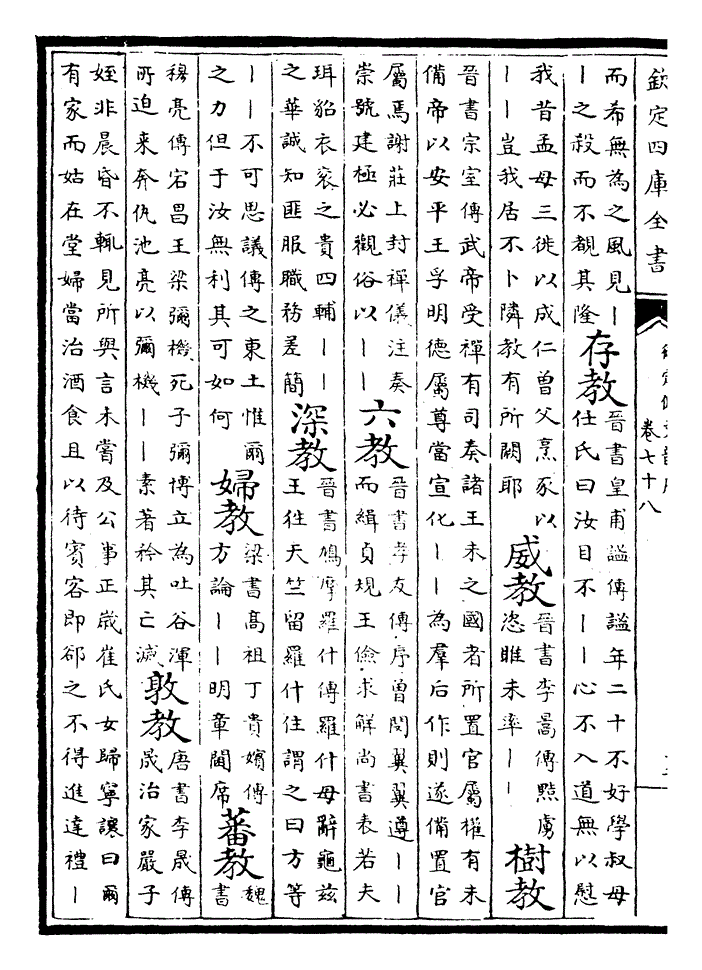 欽定四庫全書
卷七十八
而希無為之風見｜
｜之殺而不覩其隆
存教
晉書皇甫謐傳謐年二十不好學叔母
任氏曰汝目不｜｜心不入道無以慰
我昔孟母三徙以成仁曾父烹豕以
｜｜豈我居不卜隣教有所闕耶
威教
晉書李暠傳黠虜
恣睢未率｜｜
樹教
晉書宗室傳武帝受禪有司奏諸王未之國者所置官屬權有未
備帝以安平王孚明德屬尊當宣化｜｜為羣后作則遂備置官
屬焉謝莊上封禪儀注奏
崇號建極必觀俗以｜｜
六教
晉書孝友傳序曾閔翼翼遵｜｜
而緝貞規王儉求解尚書表若夫
珥貂衣衮之貴四輔｜｜
之華誠知匪服職務差簡
深教
晉書鳩摩羅什傳羅什母辭龜兹
王徃天竺留羅什住謂之曰方等
｜｜不可思議傳之東土惟爾
之力但于汝無利其可如何
婦教
梁書高祖丁貴嬪傳
方論｜｜明章閫席
蕃教
魏
書
穆亮傳宕昌王梁彌機死子彌博立為吐谷渾
所迫来奔仇池亮以彌機｜｜素著矜其亡滅
敦教
唐書李晟傳
晟治家嚴子
姪非晨昏不輒見所與言未嘗及公事正嵗崔氏女歸寧讓曰爾
有家而姑在堂婦當治酒食且以待賓客即郤之不得進達禮｜